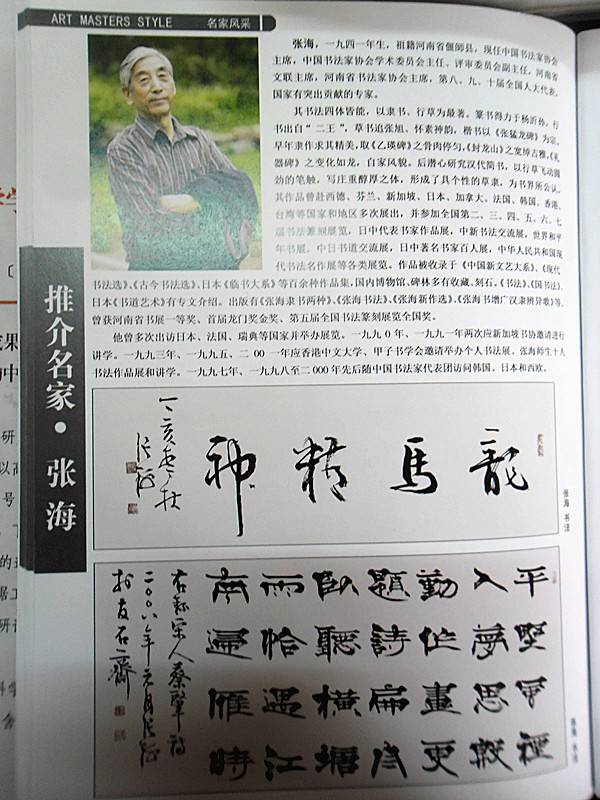 ART MASTERS STYLE
名家风采
张海，一九四一年生，祖籍河南省偃师县，现任中国书法家协会
主席，中国书法家协会学术委员会主任、评审委员会副主任，河南省
文联主席，河南省书法家协会主席，第八、九、十届全国人大代表，
国家有突出贡献的专家。
其书法四体皆能，以隶书、行草为最著。篆书得力于杨沂孙，行
书出自“二王”，草书追张旭、怀素神韵，楷书以《张猛龙碑》为宗，
早年隶作求其精美，取《乙瑛碑》之骨肉停匀，《封龙山》之宽绰古雅，《礼
器碑》之变化如龙，自家风貌。后潜心研究汉代简书，以行草飞动圆
劲的笔触，写庄重醇厚之体，形成了具个性的草隶，为书界所公认。
其作品曾赴西德、芬兰、新加坡、日本、加拿大、法国、韩国、香港、
台湾等国家和地区多次展出，并参加全国第二、三、四、五、六、七
届书法篆刻展览，日中代表书家作品展，中新书法交流展，世界和平
年书展，中日书道交流展，日中著名书家百人展，中华人民共和国现
代书法名作展等各类展览。作品被收录于《中国新文艺大系》、《现代
书法选》、《古今书法选》、日本《临书大系》等百余种作品集，国内博物馆、碑林多有收藏、刻石。《书法》、《国书法》、
日本《书道艺术》有专文介绍。出版有《张海隶书两种》、《张海书法》、《张海新作选》、《张海书增广汉隶辨异歌》等，
曾获河南省书展一等奖、首届龙门奖金奖、第五届全国书法篆刻展览全国奖。
他曾多次出访日本、法国、瑞典等国家并举办展览。一九九０年、一九九一年两次应新加坡书协邀请进行
讲学。一九九三年、一九九五、二００一年应香港中文大学、甲子书学会邀请举办个人书法展、张海师生十人
书法作品展和讲学。一九九七年、一九九八至二０００年先后随中国书法家代表团访问韩国、日本和西欧。
推介名家·张海
龍馬精神
丁亥
张海 书法
平野軍徑
入夢思
勤作畫更
題詩扁舟
臥聽橫塘
雨恰遇江
南遍雁時
右録宋人蔡肇詩
二〇〇八年元月张海
於友石斋
张海 书法